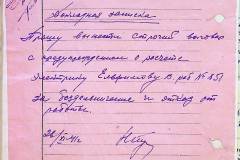 Докладная записка
Прошу вынести строгий выговор
с предупреждением о расчете
электрику В. раб №
за бездельничание и отказ от
работы.